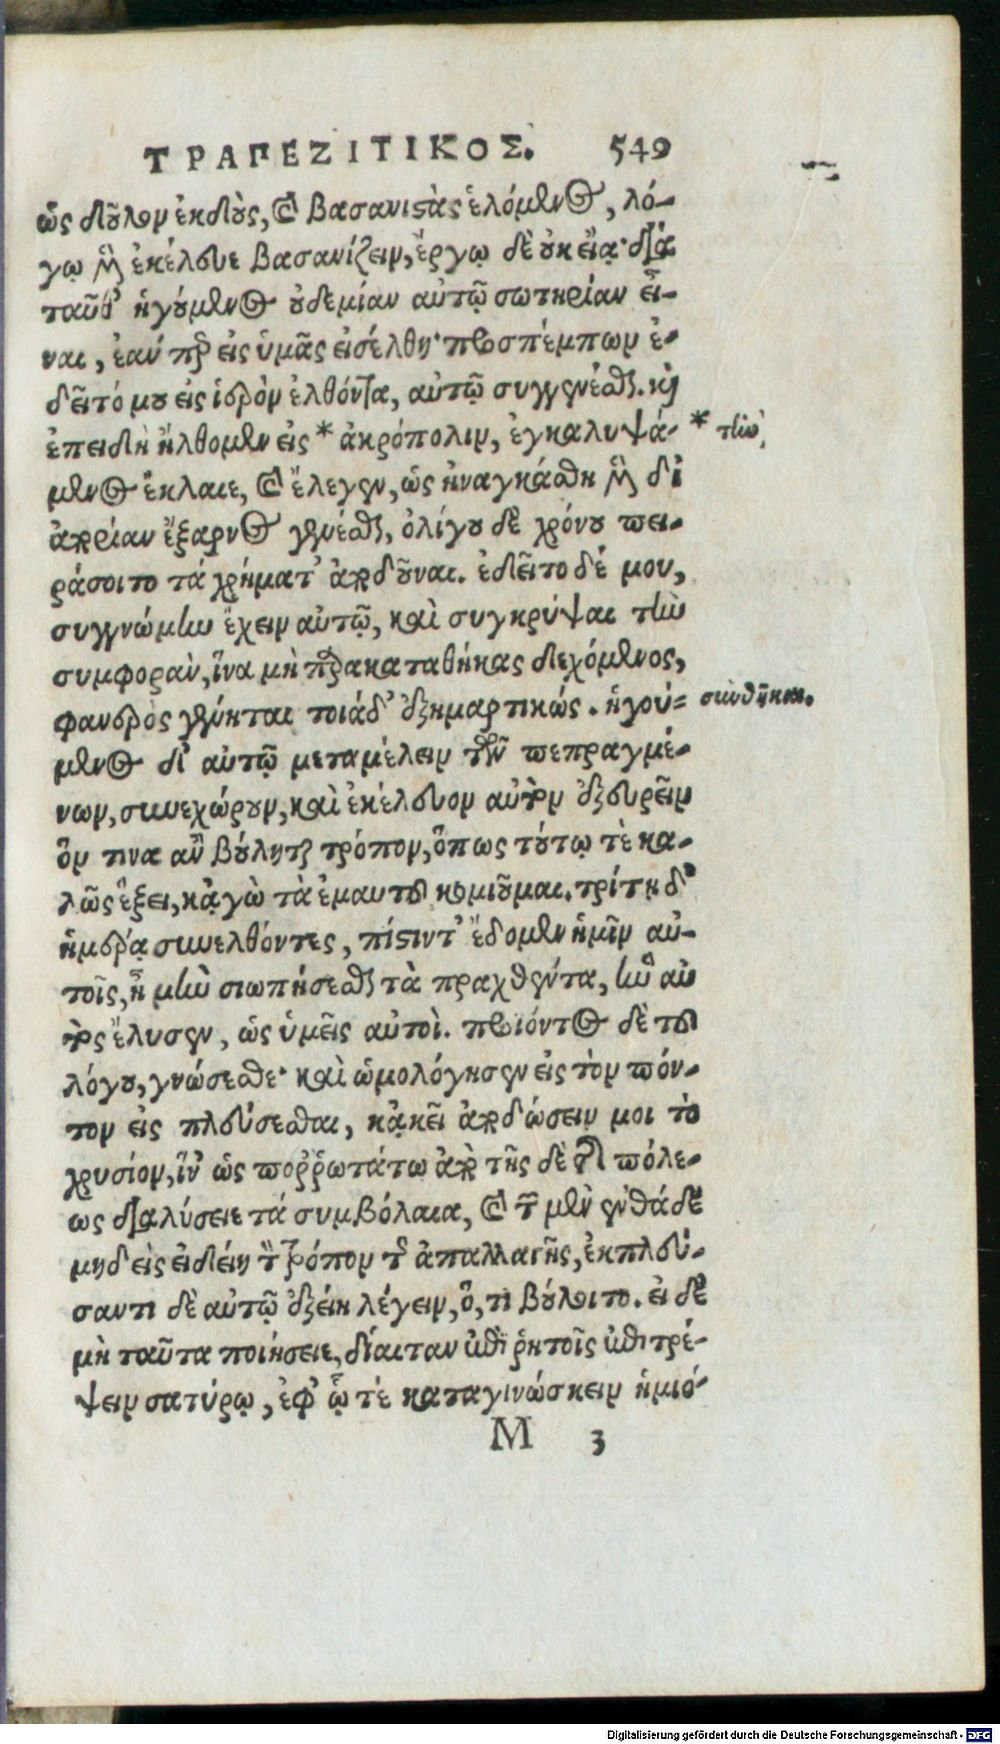 ΤΡΑΠΕΖΙΤΙΚΟΣ. 549
ὡς δοῦλον ἐκδοὺς, καὶ βασανιστὰς ἑλόμενος, λό-
γῳ μὲν ἐκέλευε βασανίζειν, ἔργῳ δὲ οὐκ εἴα· διὰ
ταῦθ' ἡγούμενος οὐδεμίαν αὐτῷ σωτηρίαν εἶ-
ναι, ἐάν περ εἰς ὑμᾶς εἰσέλθῃ· προσπέμπων ἐ-
δεῖτό μου εἰς ἱερὸν ἐλθόντα, αὐτῷ συγγενέσθαι. καὶ
ἐπειδὴ ἤλθομεν εἰς * ἀκρόπολιν, ἐγκαλυψά- * τὴν
μενος ἔκλαιε, καὶ ἔλεγεν, ὡς ἠναγκάσθη μὲν δι'
ἀπορίαν ἔξαρνος γενέσθαι, ὀλίγου δὲ χρόνου πει-
ράσοιτο τὰ χρήματ' ἀποδοῦναι. ἐδεῖτο δέ μου,
συγγνώμην ἔχειν αὐτῷ, καὶ συγκρύψαι τὴν
συμφορὰν, ἵνα μὴ παρακαταθήκας δεχόμενος,
φανερὸς γένηται τοιάδ' ἐξημαρτικώς. ἡγού= συνθῆκαι.
μενος δ' αὐτῷ μεταμέλειν τῶν πεπραγμέ-
νων, συνεχώρουν, καὶ ἐκέλευον αὐτὸν ἐξευρεῖν
ὅν τινα ἂν βούληται τρόπον, ὅπως τούτῳ τὲ κα-
λῶς ἕξει, κᾀγὼ τὰ ἐμαυτοῦ κομιοῦμαι. τρίτῃ δ'
ἡμέρᾳ συνελθόντες, πίστιν τ' ἔδομεν ἡμῖν αὐ-
τοῖς, ἦ μὴν σιωπήσεσθαι τὰ πραχθέντα, ἣν αὐ
τὸς ἔλυσεν, ὡς ὑμεῖς αὐτοὶ. προϊόντος δὲ τοῦ
λόγου, γνώσεσθε· καὶ ὡμολόγησεν εἰς τὸν πόν-
τον εἰς πλεύσεσθαι, κᾀκεῖ ἀποδώσειν μοι τὸ
χρυσίον, ἵν' ὡς ποῤῥωτάτω ἀπὸ τῆς δὲ τῆς πόλε-
ως διαλύσειε τὰ συμβόλαια, καὶ τῶν μὲν ἐνθάδε
μηδεὶς εἰδείη τὸν τρόπον τῆς ἀπαλλαγῆς, ἐκπλεύ-
σαντι δὲ αὐτῷ ἐξείη λέγειν, ὅ, τι βούλοιτο. εἰ δὲ
μὴ ταῦτα ποιήσειε, δίαιταν ἐπὶ ῥητοῖς ἐπιτρέ-
ψειν σατύρῳ, ἐφ' ᾧ τὲ καταγινώσκειν ἡμιό-
M 3
Digitalisierung gefördert durch die Deutsche Forschungsgemeinschaft - DFG